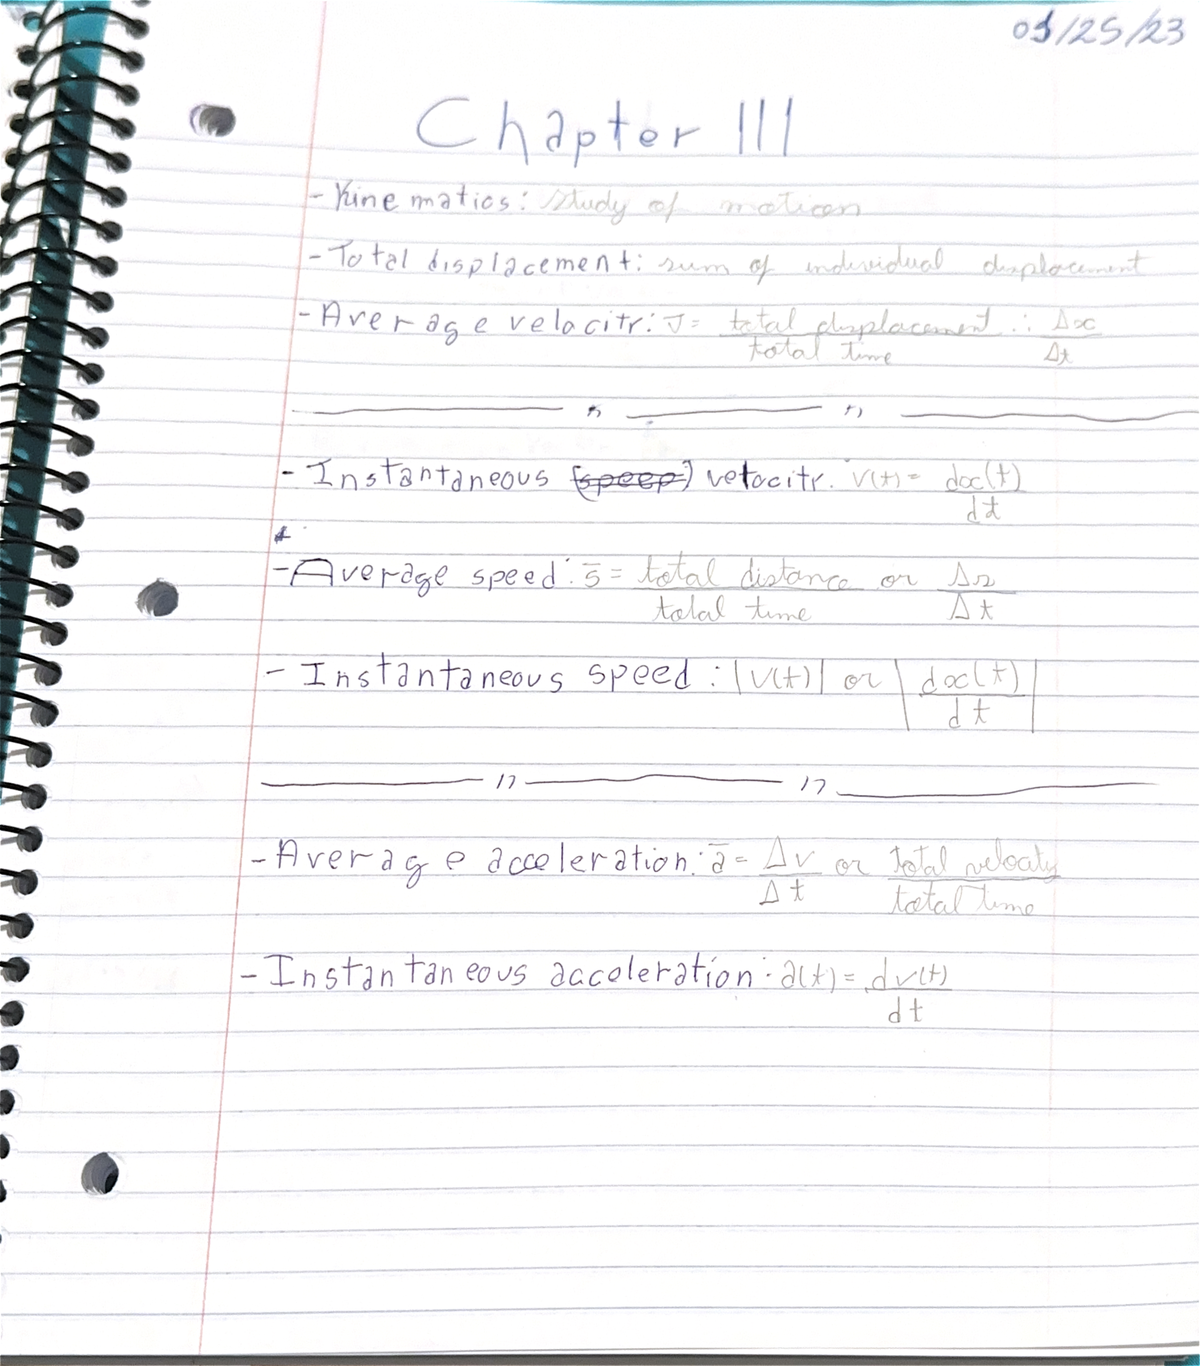 01/25/23
Chapter III
- Kinematics: study of motion
- Total displacement: sum of individual displacement
- Average velocity: v̅ = total displacement ∴ Δx
total time Δt
- Instantaneous (speed) velocity: v(t) = dx(t)
dt
- Average speed: s̅ = total distance or Δs
total time Δt
- Instantaneous speed: |v(t)| or |dx(t)|
dt
- Average acceleration: a̅ = Δv or total velocity
Δt total time
- Instantaneous acceleration: a(t) = dv(t)
dt